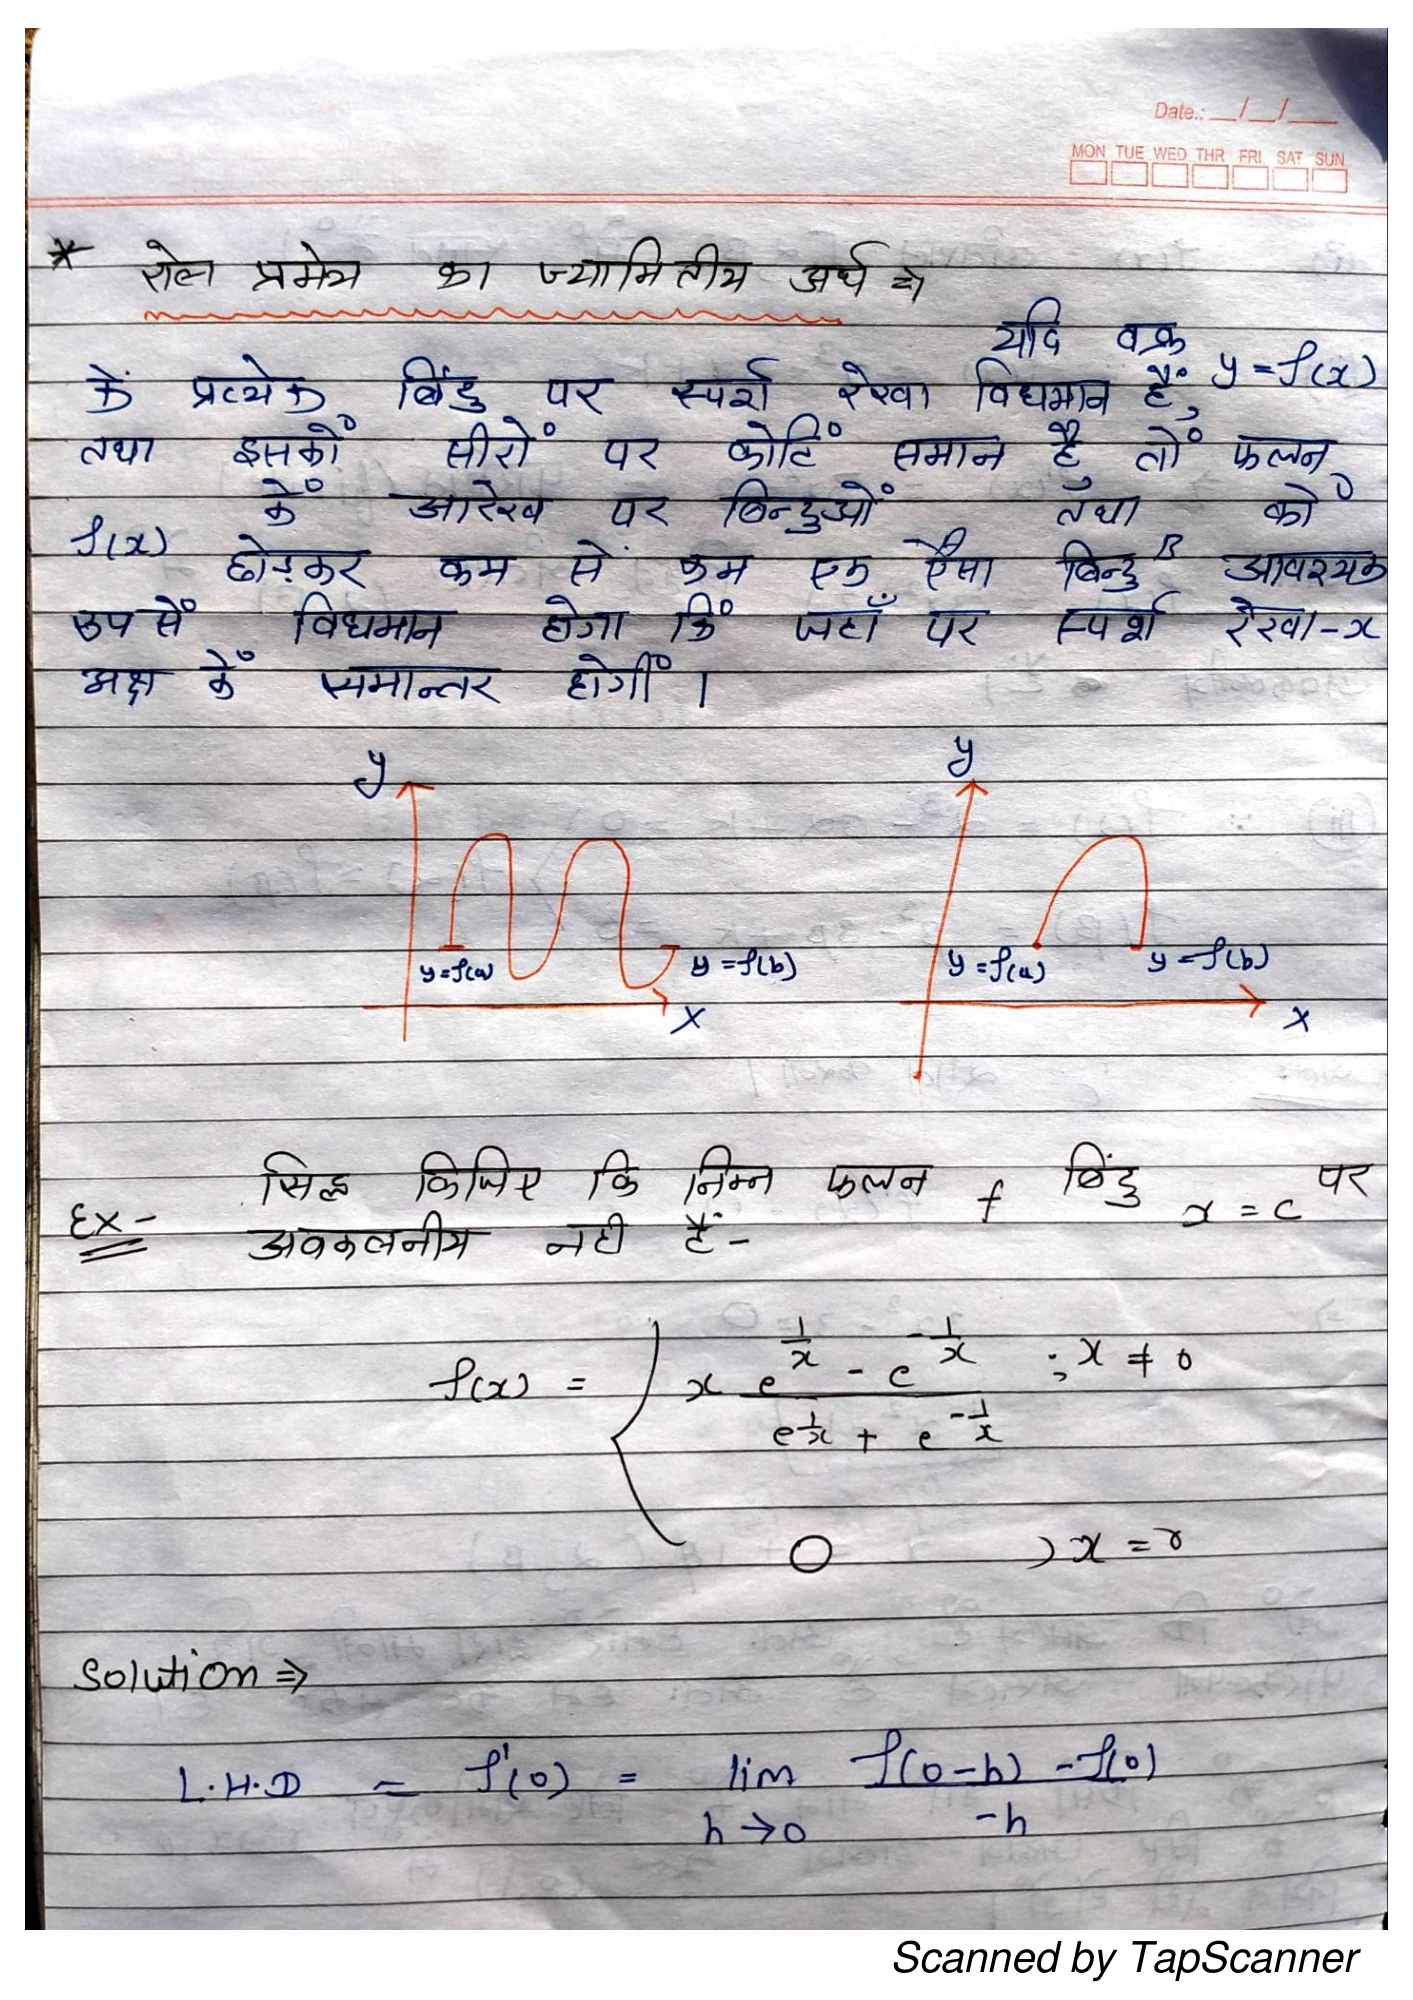 Date.: __/__/___
MON TUE WED THR FRI SAT SUN
* रोल प्रमेय का ज्यामितीय अर्थ ⇒
यदि वक्र
कें प्रत्येक बिंदु पर स्पर्श रेखा विधमान हैं, y = f(x)
तथा इसकों सीरों पर कोटिं समान है तों फलन
कें आरेख पर बिन्दुओं तथा को
f(x) छोड़कर कम सें कम एक ऐसा बिन्दु B आवश्यक
रुप सें विधमान होगा कि जहाँ पर स्पर्श रेखा-x
अक्ष कें समान्तर होगीं ।
y y
y=f(a) y=f(b) y=f(a) y=f(b)
x x
सिद्ध किजिए कि निम्न फलन f बिंदु x = c पर
Ex- अवकलनीय नही हैं -
f(x) = { x (e^{1/x} - e^{-1/x}) / (e^{1/x} + e^{-1/x}) ; x ≠ 0
0 , x = 0
Solution ⇒
L.H.D = f'(0) = lim f(0-h) - f(0)
h→0 -h
Scanned by TapScanner